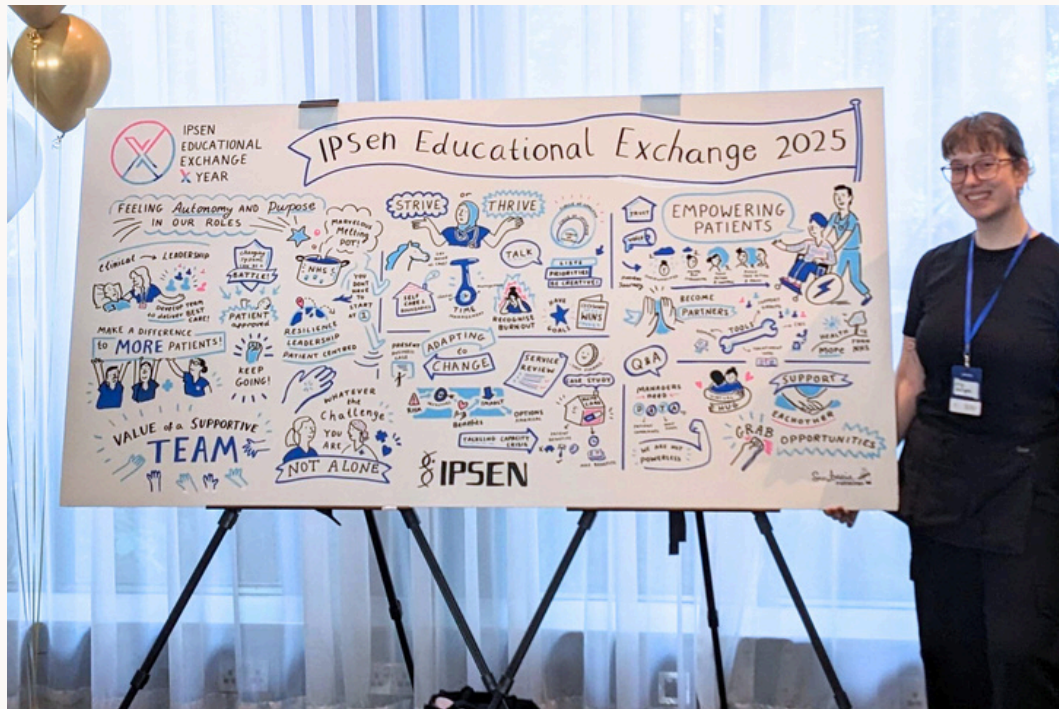 IPSEN
EDUCATIONAL
EXCHANGE
X YEAR
IPsen Educational Exchange 2025
FEELING Autonomy AND Purpose
IN OUR ROLES
Clinical → LEADERSHIP
DEVELOP TEAM
to DELIVER BEST
CARE!
CHANGING
BATTLE!
PATIENT
approved
MAKE A DIFFERENCE
to MORE PATIENTS!
KEEP
GOING!
VALUE of a SUPPORTIVE
TEAM
MARVELOUS
Melting
POT!
NHS
YOU
DON'T
HAVE
TO
START
AT 1
RESILIENCE
LEADERSHIP
PATIENT CENTRED
WHATEVER
the
Challenge
YOU
ARE
NOT ALONE
STRIVE or THRIVE
TALK
SELF
CARE &
BOUNDARIES
TIME
MANAGEMENT
RECOGNISE
BURNOUT
LISTS
PRIORITIES
BE CREATIVE!
HAVE
GOALS
WINS
PRESENT
BUSINESS
CASE
ADAPTING
to
CHANGE
SERVICE
REVIEW
CASE STUDY
RISK
Benefits
IMPACT
OPTIONS
APPRAISAL
CAPACITY
CRISIS
IPSEN
TRUST
EMPOWERING
PATIENTS
BECOME
PARTNERS
TOOLS
HEALTH
MORE
FROM
NHS
Q&A
MANAGERS
NEED
DATA
WE ARE NOT
POWERLESS
HUB
SUPPORT
EACHOTHER
GRAB
OPPORTUNITIES